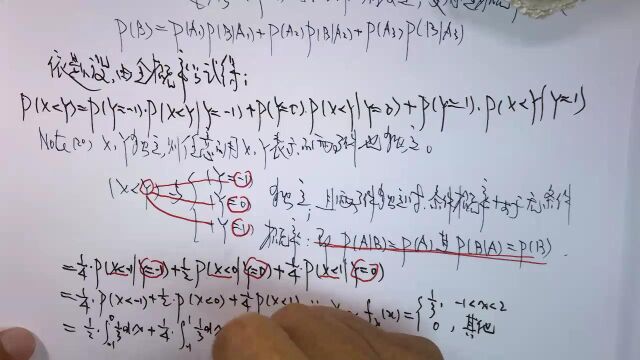 P(B)=P(A₁)P(B|A₁)+P(A₂)P(B|A₂)+P(A₃)P(B|A₃)
依题设,由全概率公式得:
P(X<Y)=P(Y=-1)·P(X<Y|Y=-1)+P(Y=0)·P(X<Y|Y=0)+P(Y=1)·P(X<Y|Y=1)
X,Y独立,则任意的用X,Y表示的两事件也独立。
(X<Y) {Y=-1}
{Y=0} 独立,且两事件独立时,条件概率等于无条件
{Y=1} 概率:即P(A|B)=P(A),或P(B|A)=P(B).
=¼·P(X<-1|Y=-1)+½P(X<0|Y=0)+¼·P(X<1|Y=0)
=¼·P(X<-1)+½·P(X<0)+¼P(X<1) f_X(x)={⅓, -1<x<2
0, 其他
=½·∫₋₁⁰⅓dx+¼·∫₋₁¹⅓dx